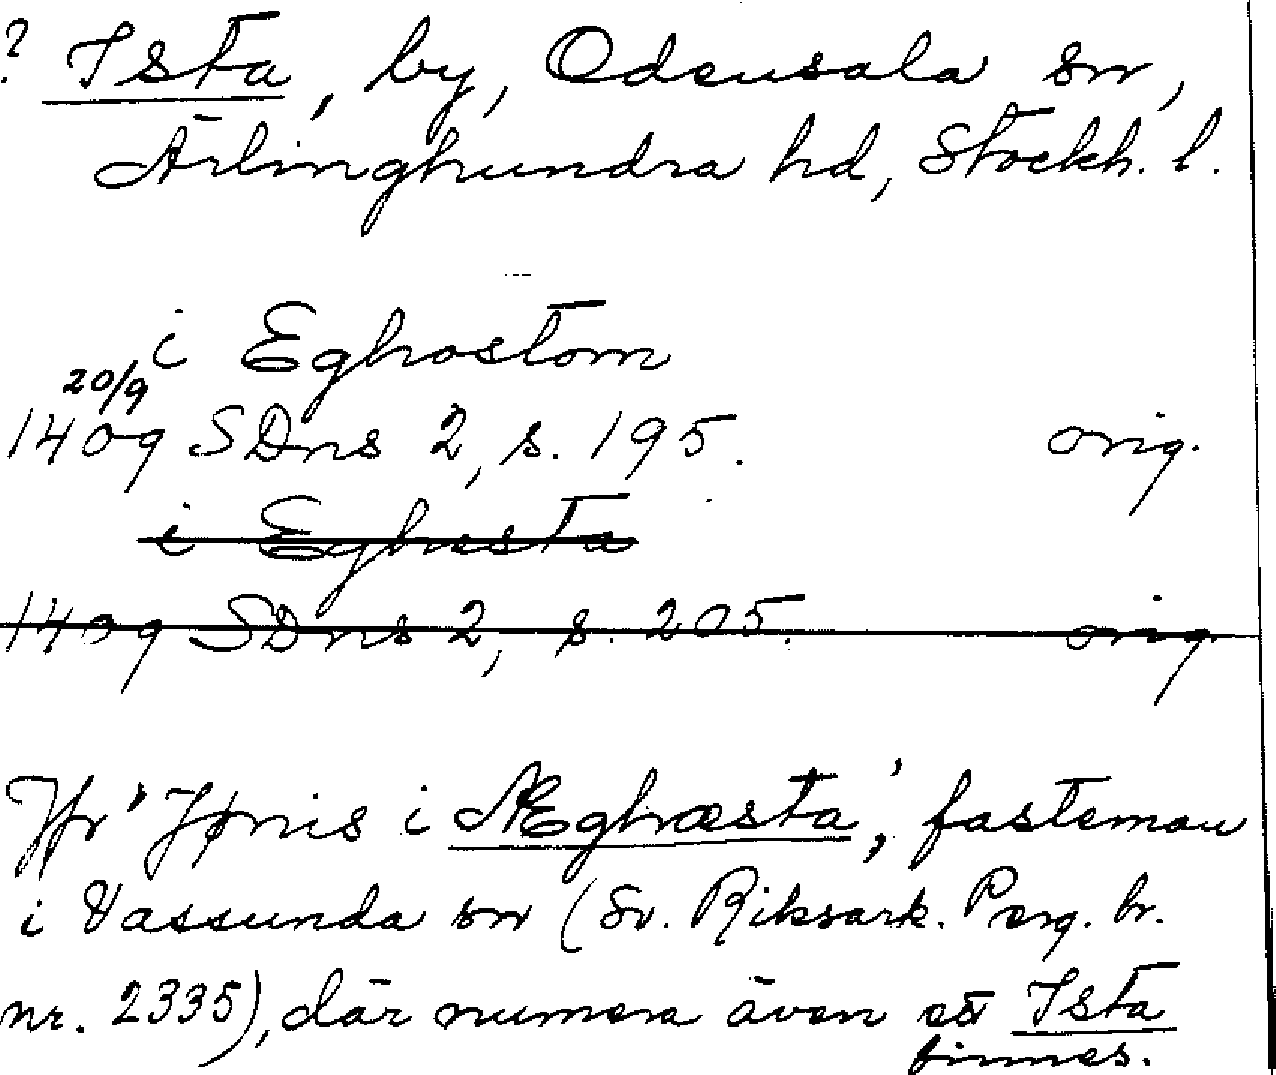 ? Ista, by, Odensala sn,
Ärlinghundra hd, Stockh. l.
i Eghostom
20/9
1409 SDns 2, s. 195. orig.
i Eghesta
1409 SDns 2, s. 205. orig.
Jfr 'Jønis i Æghæsta', fasteman
i Vassunda sn (Sv. Riksark. Perg. br.
nr. 2335), där numera även ett Ista
finnes.